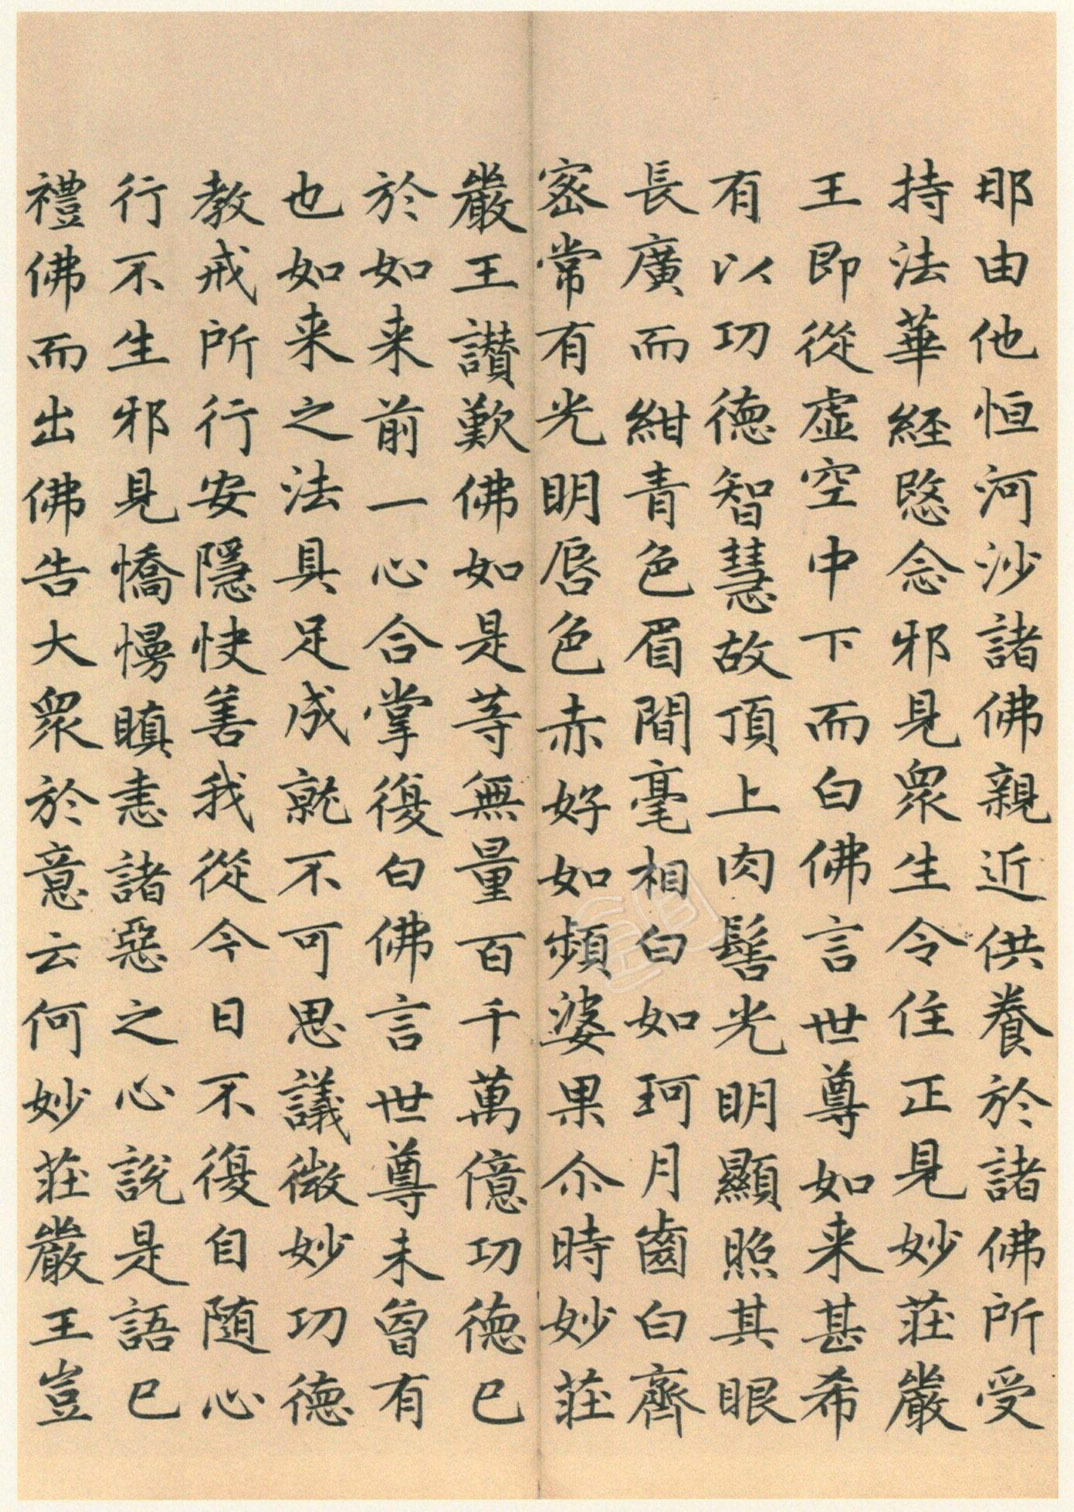 耶由他恒河沙諸佛親近供養於諸佛所受
持法華經愍念邪見衆生令住正見妙莊嚴
王即從虛空中下而白佛言世尊如来甚希
有以功德智慧故頂上肉髻光明顯照其眼
長廣而紺青色眉間毫相白如珂月齒白齊
密常有光明唇色赤好如頻婆果尒時妙莊
嚴王讃歎佛如是等無量百千萬億功德已
於如来前一心合掌復白佛言世尊未曾有
也如来之法具足成就不可思議微妙功德
教戒所行安隱快善我從今日不復自随心
行不生邪見憍慢瞋恚諸惡之心說是語已
禮佛而出佛告大衆於意云何妙莊嚴王豈